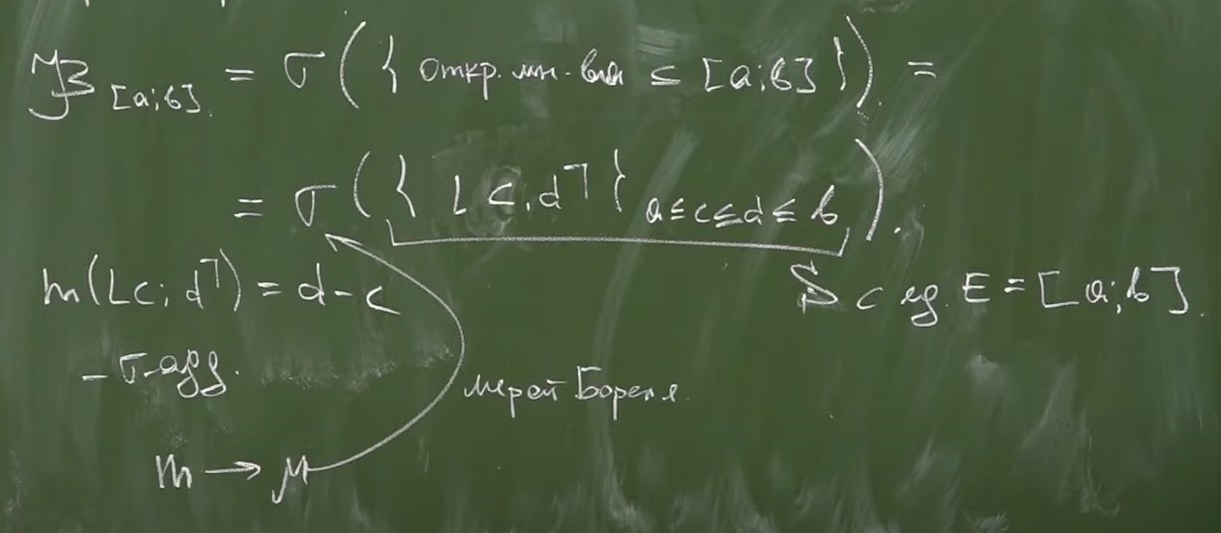 𝔅[a;b] = σ({ откр. мн-ва ⊆ [a;b] }) =
= σ({ ⌊c;d⌉ } a≤c≤d≤b ).
m(⌊c;d⌉) = d-c
S с ед. E = [a;b].
- σ-адд.
мерой Бореля
m → μ